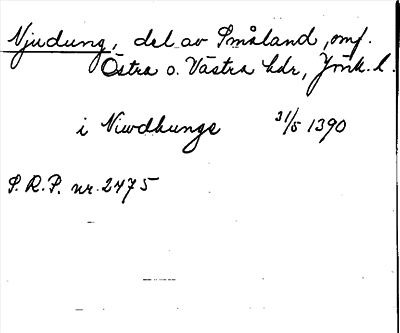 Njudung, del av Småland, omf.
Östra o. Västra hdr, Jönk. l.
i Niwdhungs 31/5 1390
S.R.P. nr. 2475